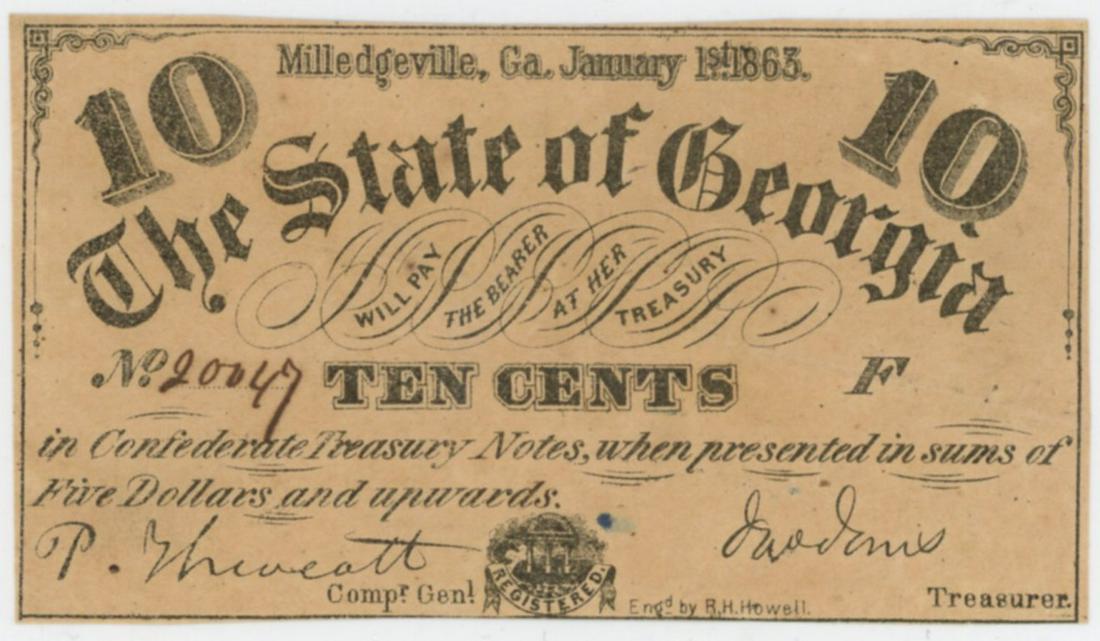 Milledgeville, Ga. January 1st 1863.
10 10
The State of Georgia
WILL PAY THE BEARER AT HER TREASURY
No. 20047 TEN CENTS F
in Confederate Treasury Notes, when presented in sums of
Five Dollars and upwards.
P. Thweatt
Compr. Genl.
REGISTERED.
Engd by R.H. Howell.
Jno Jones
Treasurer.